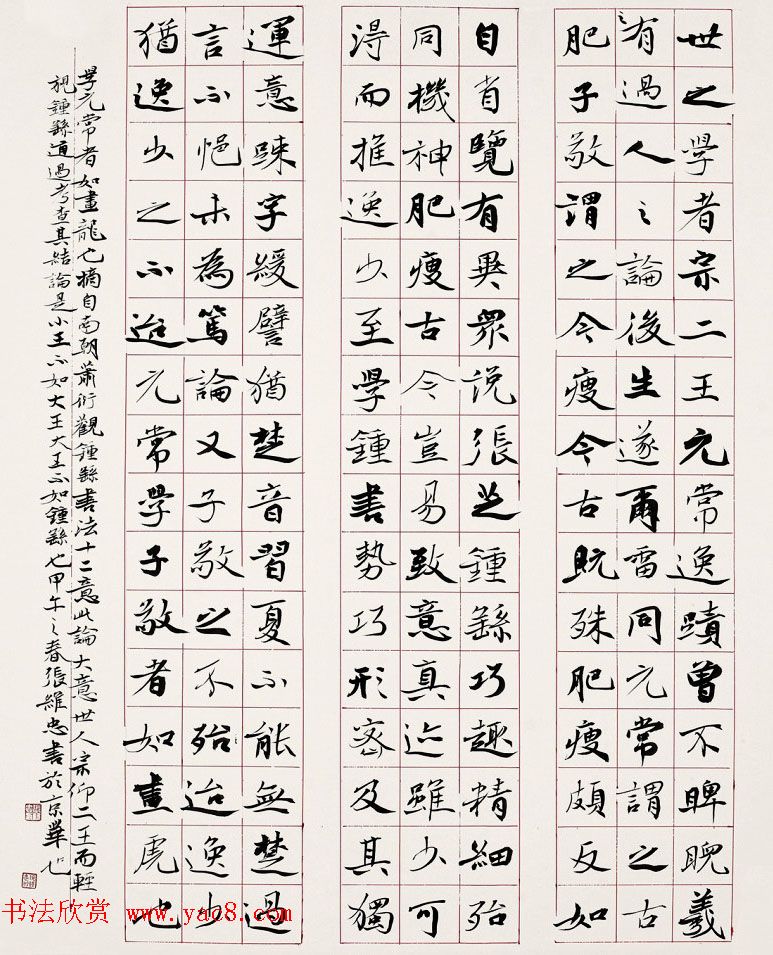 世之學者宗二王元常逸蹟曾不睥睨羲
有過人之論後生遂爾雷同元常謂之古
肥子敬謂之今瘦今古既殊肥瘦頗反如
自省覽有異眾說張芝鍾繇巧趣精細殆
同機神肥瘦古今豈易致意真迹雖少可
淂而推逸少至學鍾書勢巧形密及其獨
運意踈字緩譬猶楚音習夏不能無楚過
言不悒未為篤論又子敬之不殆迨逸少
猶逸少之不迨元常學子敬者如畫虎也
學元常者如畫龍也摘自南朝蕭衍觀鍾繇書法十二意此論大意世人宗仰二王而輕
視鍾繇通過考查其結論是小王不如大王大王不如鍾繇也甲午之春張維忠書於京華也
书法欣赏 www.yac8.com